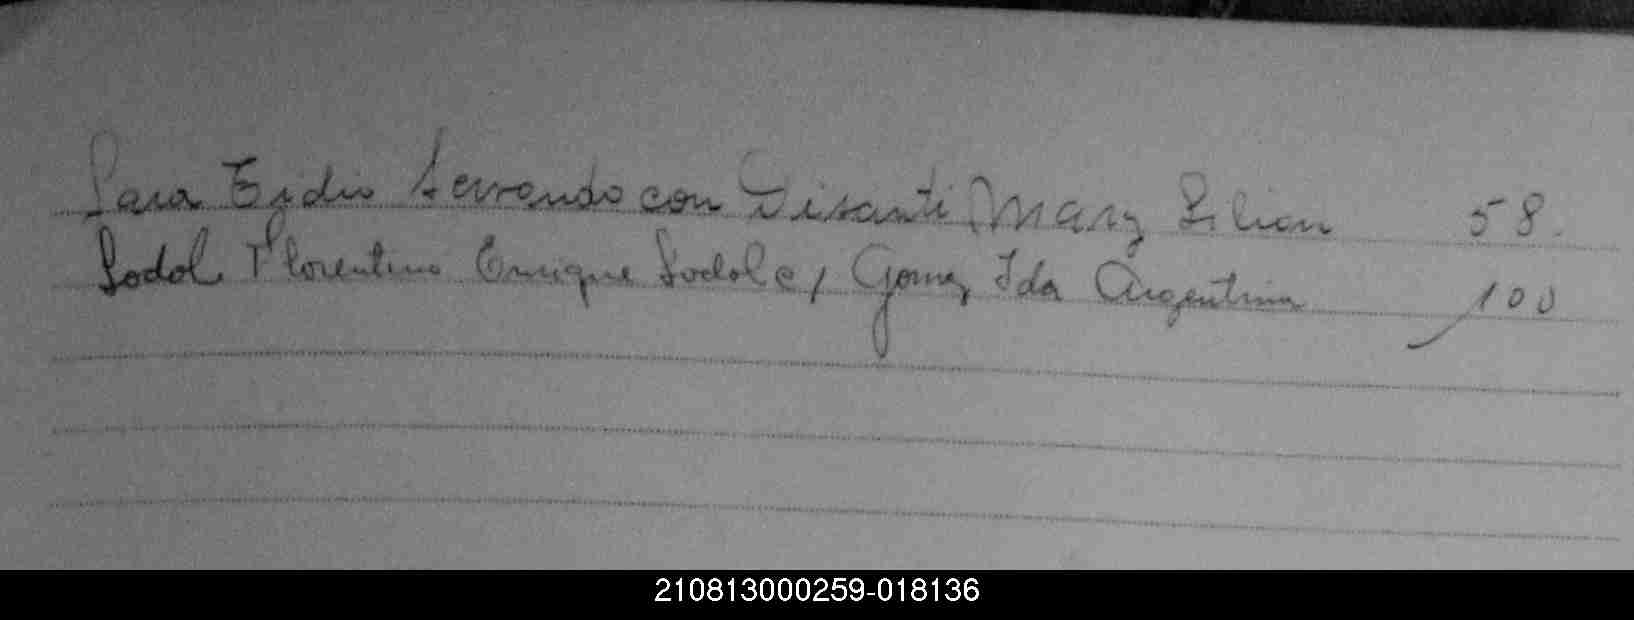 Sara Egidio Servando con Disanti Mary Lilian 58.
Sodol Florentino Enrique Sodol c/ Gomez Ida Argentina 100
210813000259-018136